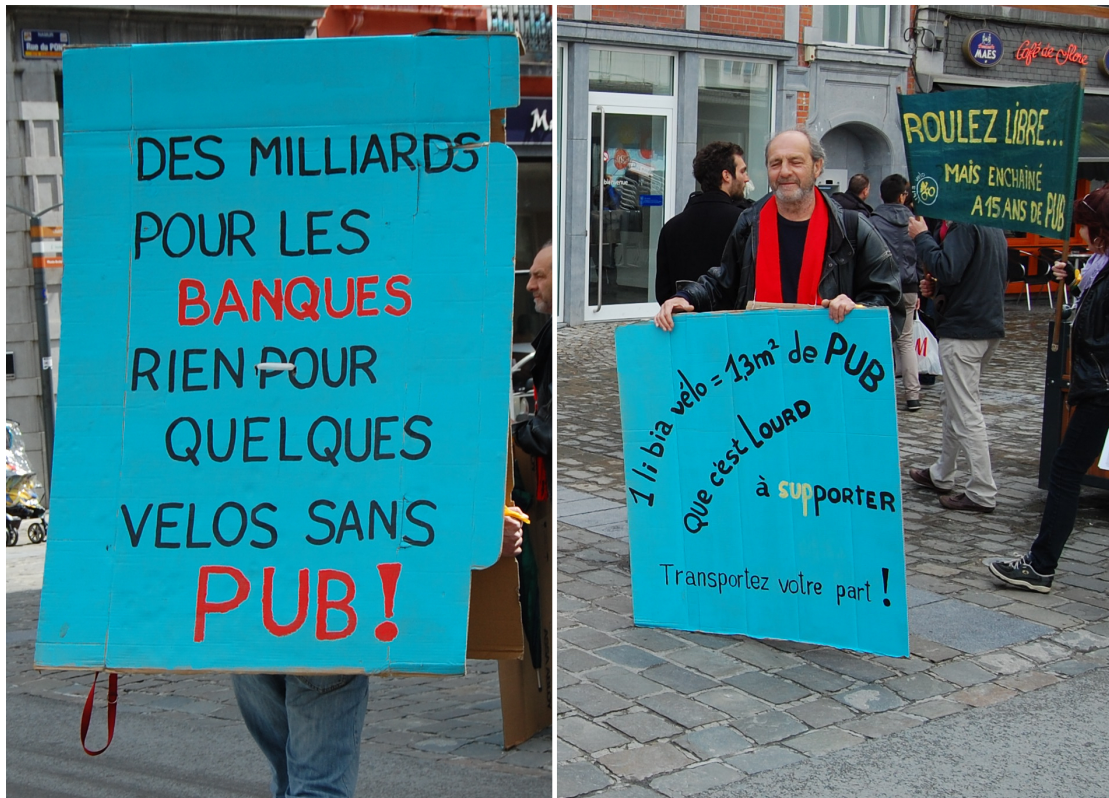 Rue du PONT
DES MILLIARDS
POUR LES
BANQUES
RIEN POUR
QUELQUES
VELOS SANS
PUB!
MAES
Café de Flore
ROULEZ LIBRE...
MAIS ENCHAÎNÉ
A 15 ANS DE PUB
1 li bia vélo = 1,3m² de PUB
Que c'est LOURD
à supPORTER
Transportez votre part !
M